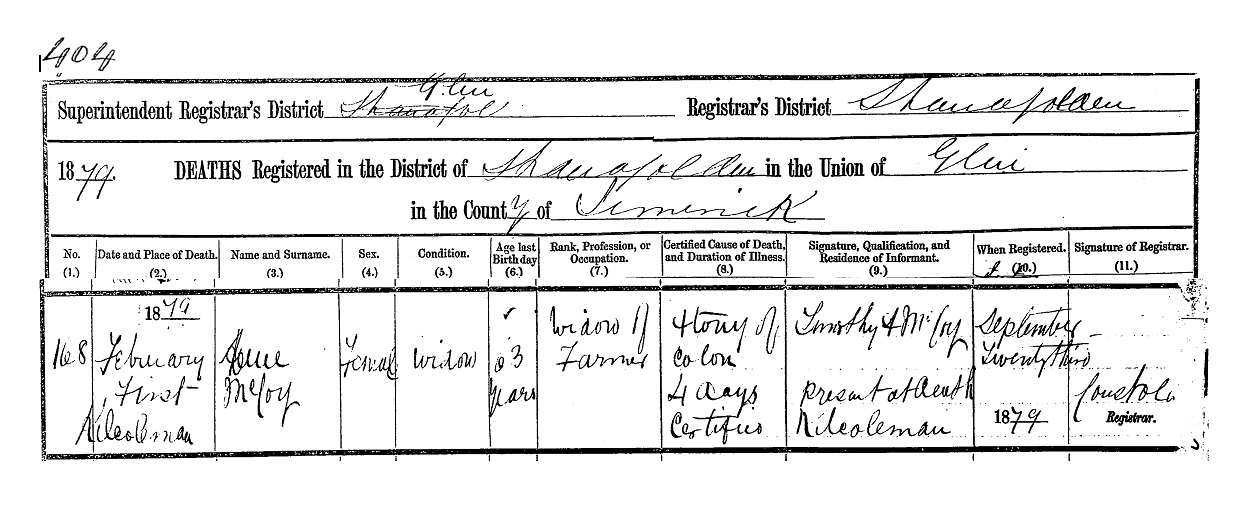 404
Glin
Superintendent Registrar's District Shanafol Registrar's District Shanafolden
1879. DEATHS Registered in the District of Shanafolden in the Union of Glin
in the County of Limerick
No. (1.) Date and Place of Death. (2.) Name and Surname. (3.) Sex. (4.) Condition. (5.) Age last Birthday (6.) Rank, Profession, or Occupation. (7.) Certified Cause of Death, and Duration of Illness. (8.) Signature, Qualification, and Residence of Informant. (9.) When Registered. (10.) Signature of Registrar. (11.)
1879
168
February
First
Kilcoleman
McCoy
Female
Widow
3
years
Widow of
Farmer
of
Colon
4 days
Certified
Timothy McCoy
present at death
Kilcoleman
September
Twenty third
1879
Registrar.